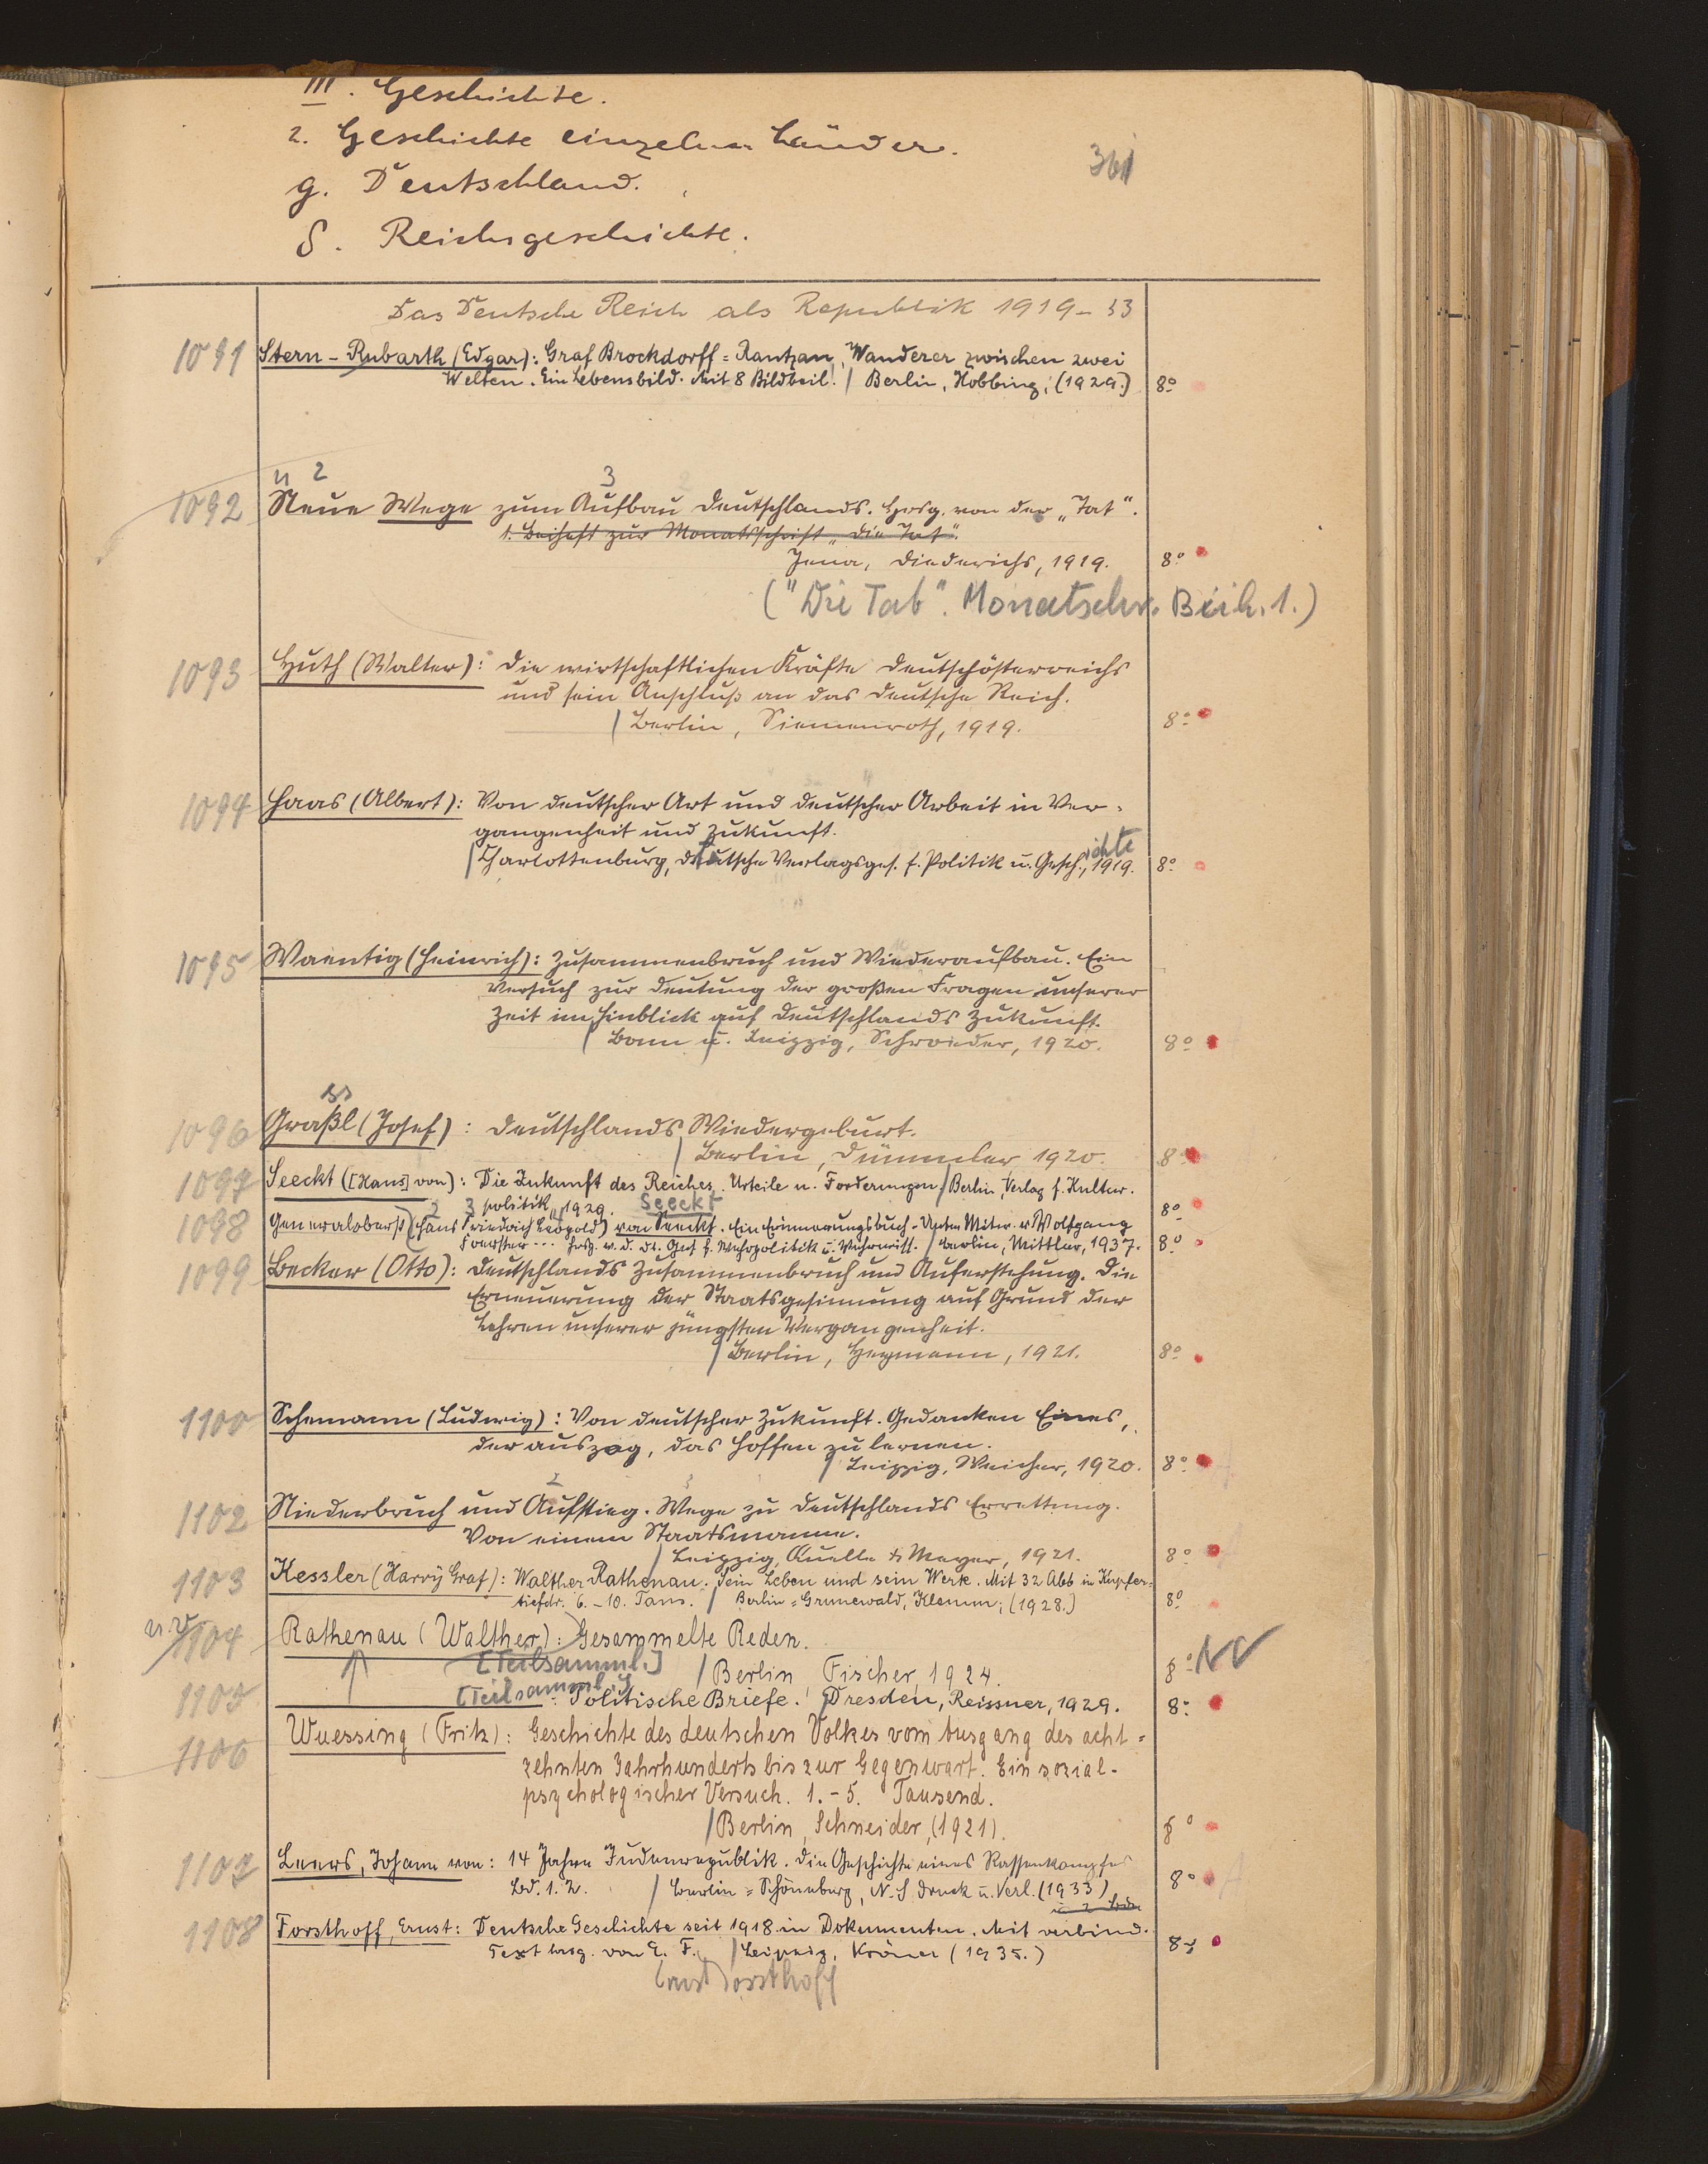 III. Geschichte.
2. Geschichte einzelner Länder.
361
g. Deutschland.
δ. Reichsgeschichte.
Das Deutsche Reich als Republik 1919-33
1091 Stern-Rubarth (Edgar): Graf Brockdorff=Rantzau, Wanderer zwischen zwei
Welten. Ein Lebensbild. Mit 8 Bildbeil. / Berlin, Hobbing, (1929.) 8°
2 3
1092 Neue Wege zum Aufbau Deutschlands. Hrsg. von der „Tat".
1. Beiheft zur Monatsschrift „Die Tat".
Jena, Diederichs, 1919. 8°
("Die Tat". Monatschr. Beih. 1.)
1093 Huth (Walter): Die wirtschaftlichen Kräfte Deutschösterreichs
und sein Anschluß an das Deutsche Reich.
/ Berlin, Siemenroth, 1919. 8°
1094 Haas (Albert): Von deutscher Art und deutscher Arbeit in Ver-
gangenheit und Zukunft.
ichte
/ Charlottenburg, Deutsche Verlagsges. f. Politik u. Gesch., 1919. 8°
1095 Waentig (Heinrich): Zusammenbruch und Wiederaufbau. Ein
Versuch zur Deutung der großen Fragen unserer
Zeit im Hinblick auf Deutschlands Zukunft.
/ Bonn u. Leipzig, Schroeder, 1920. 8°
ss
1096 Graßl (Josef): Deutschlands Wiedergeburt.
/ Berlin, Dümmler, 1920. 8°
1097 Seeckt ([Hans] von): Die Zukunft des Reiches. Urteile u. Forderungen. / Berlin, Verlag f. Kultur-
politik, 1929. 8°
2 3 Seeckt
1098 Generaloberst (Hans Friedrich Leopold) von Seeckt. Ein Erinnerungsbuch. Unter Mitw. v. Wolfgang
Foerster ... hrsg. v. d. Dt. Ges. f. Wehrpolitik u. Wehrwiss. / Berlin, Mittler, 1937. 8°
1099 Becker (Otto): Deutschlands Zusammenbruch und Auferstehung. Die
Erneuerung der Staatsgesinnung auf Grund der
Lehren unserer jüngsten Vergangenheit.
/ Berlin, Heymann, 1921. 8°
1100 Schemann (Ludwig): Von deutscher Zukunft. Gedanken Eines,
der auszog, das Hoffen zu lernen.
/ Leipzig, Weicher, 1920. 8°
2 3
1102 Niederbruch und Aufstieg. Wege zu Deutschlands Errettung.
Von einem Staatsmanne.
/ Leipzig, Quelle & Meyer, 1921. 8°
1103 Kessler (Harry Graf): Walther Rathenau. Sein Leben und sein Werk. Mit 32 Abb in Kupfer=
tiefdr. 6.-10. Taus. / Berlin=Grunewald, Klemm, (1928.) 8°
1104 Rathenau (Walther): Gesammelte Reden.
[Teilsamml.] / Berlin, Fischer, 1924. 8°
1105 [Teilsamml.] : Politische Briefe. / Dresden, Reissner, 1929. 8°
1106 Wuessing (Fritz): Geschichte des deutschen Volkes vom Ausgang des acht=
zehnten Jahrhunderts bis zur Gegenwart. Ein sozial-
psychologischer Versuch. 1.-5. Tausend.
/ Berlin, Schneider, (1921). 8°
1107 Leers, Johann von: 14 Jahre Judenrepublik. Die Geschichte eines Rassenkampfes
Bd. 1. 2. / Berlin=Schöneberg, N. S. Druck u. Verl. (1933) 8°
1108 Forsthoff, Ernst: Deutsche Geschichte seit 1918 in Dokumenten. Mit verbind.
Text hrsg. von E. F. / Leipzig, Kröner (1935.) 8°
Ernst Forsthoff